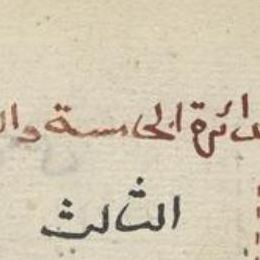 دائرة الخامسة وال
الثالث